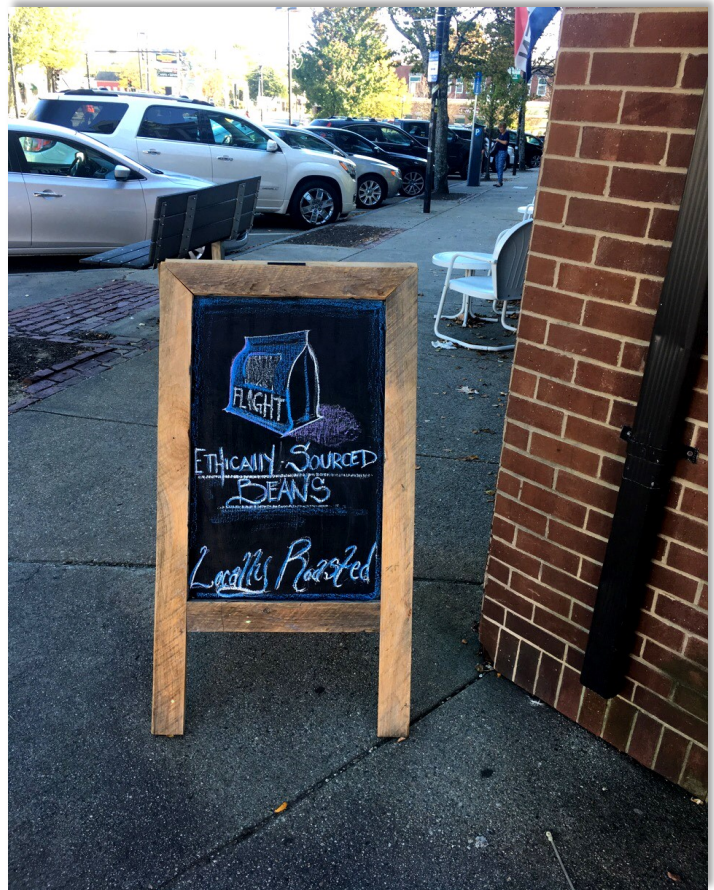 FLIGHT
ETHICALLY SOURCED
BEANS
Locally Roasted